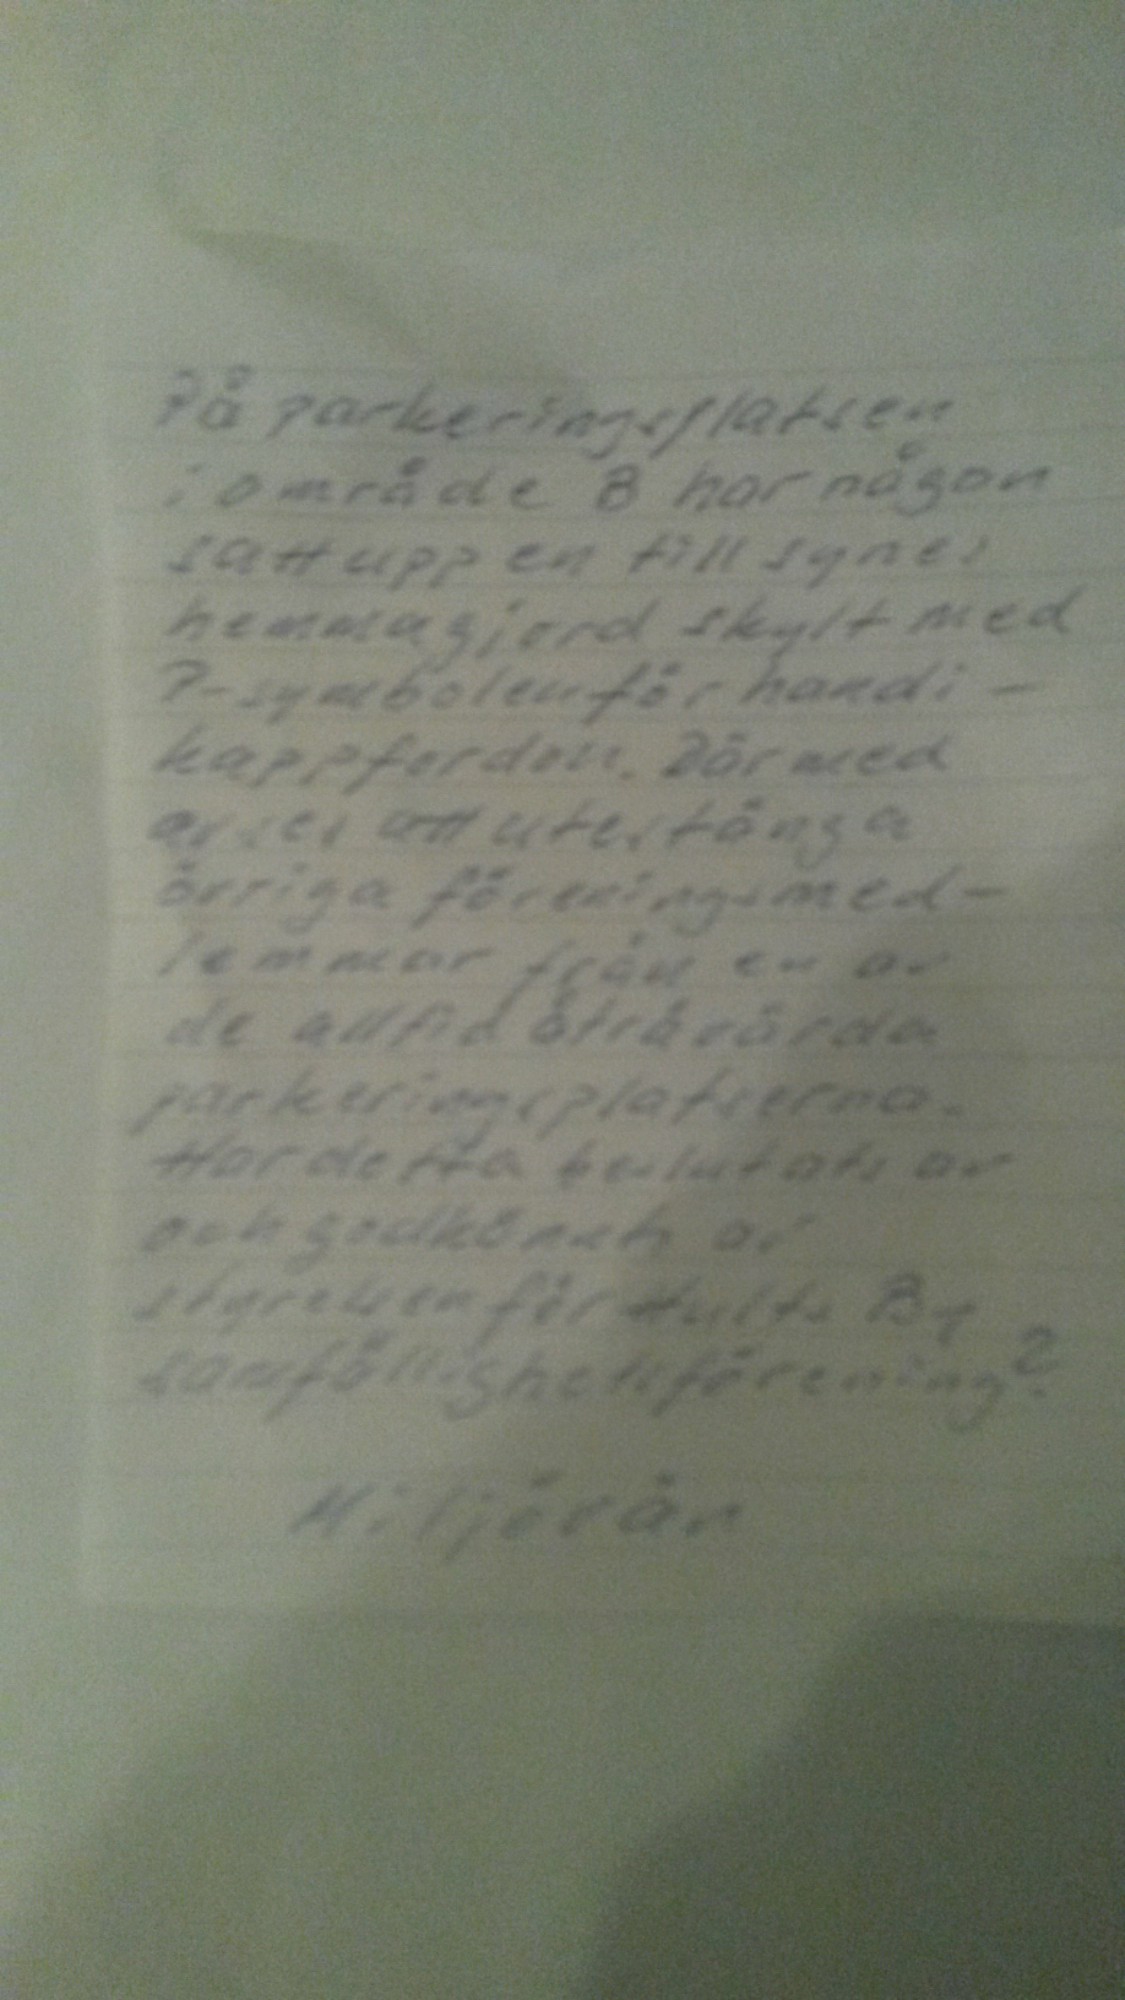 På parkeringsplatsen
i område B har någon
satt upp en till synes
hemmagjord skylt med
P-symbolen för handi-
kappfordon. Därmed
avses att utestänga
övriga föreningsmed-
lemmar från en av
de alltid åtråvärda
parkeringsplatserna.
Har detta beslutats av
och godkänts av
styrelsen för Hults By
samfällighetsförening?